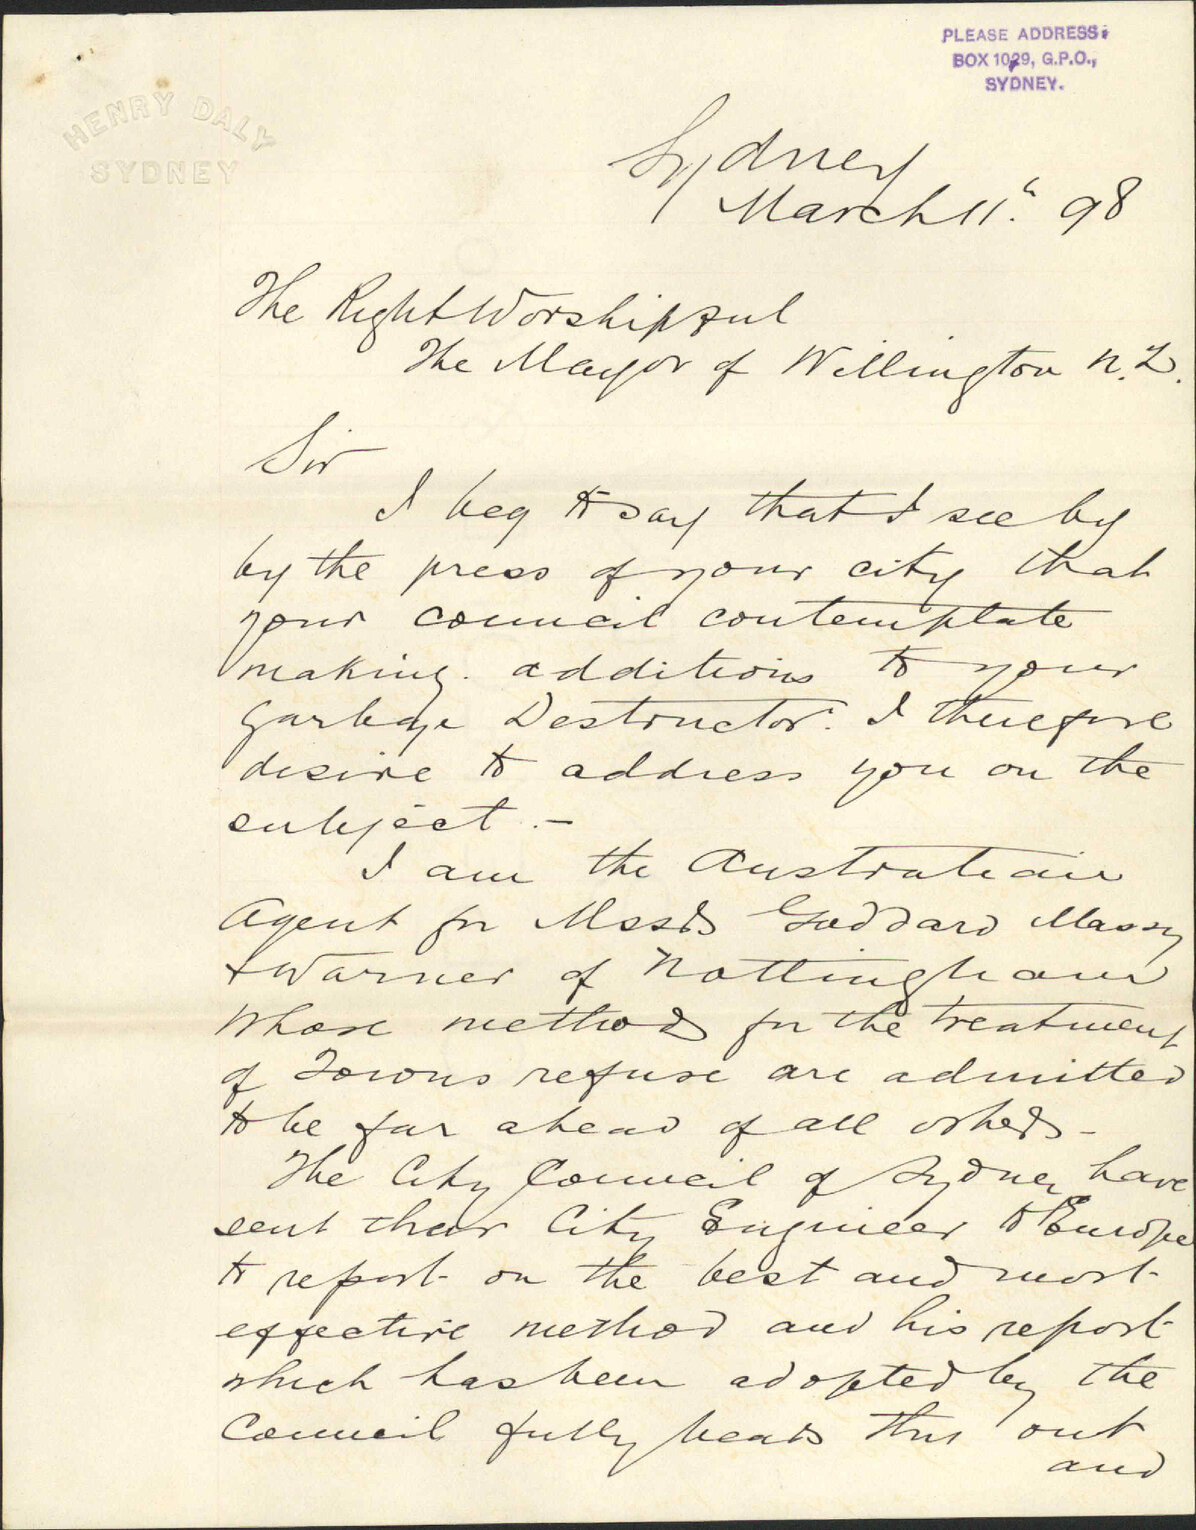 HENRY DALY
SYDNEY
PLEASE ADDRESS:
BOX 1029, G.P.O.,
SYDNEY.
Sydney
March 11th. 98
The Right Worshipful
The Mayor of Willington N.Z.
Sir
I beg to say that I see by
by the press of your city that
your council contemplate
making additions to your
Garbage Destructor. I therefore
desire to address you on the
subject. -
I am the Australian
Agent for Messrs Goddard Massey
& Warner of Nottingham
whose methods for the treatment
of Towns refuse are admitted
to be far ahead of all others -
The City Council of Sydney have
sent their City Engineer to Europe
to report on the best and most
effective method and his report
which has been adopted by the
Council fully bears this out
and